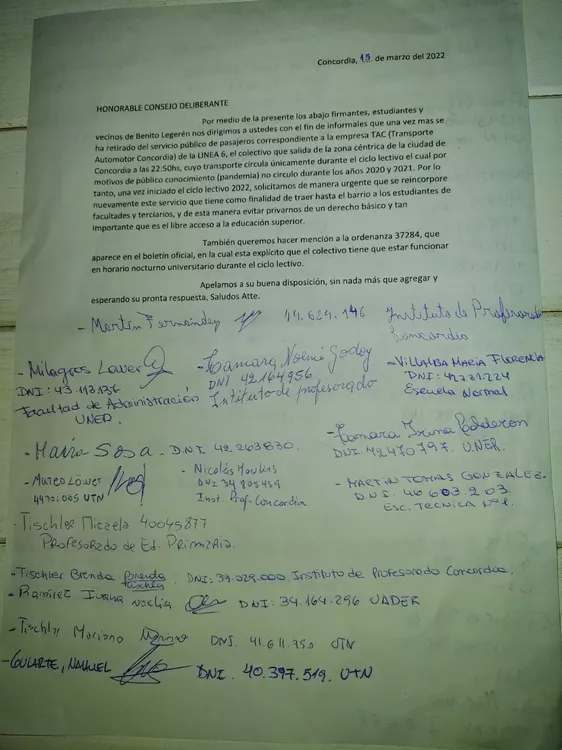 Concordia, 15 de marzo del 2022
HONORABLE CONSEJO DELIBERANTE
Por medio de la presente los abajo firmantes, estudiantes y
vecinos de Benito Legerén nos dirigimos a ustedes con el fin de informales que una vez mas se
ha retirado del servicio público de pasajeros correspondiente a la empresa TAC (Transporte
Automotor Concordia) de la LINEA 6, el colectivo que salida de la zona céntrica de la ciudad de
Concordia a las 22:50hs, cuyo transporte circula únicamente durante el ciclo lectivo el cual por
motivos de público conocimiento (pandemia) no circulo durante los años 2020 y 2021. Por lo
tanto, una vez iniciado el ciclo lectivo 2022, solicitamos de manera urgente que se reincorpore
nuevamente este servicio que tiene como finalidad de traer hasta el barrio a los estudiantes de
facultades y terciarios, y de esta manera evitar privarnos de un derecho básico y tan
importante que es el libre acceso a la educación superior.
También queremos hacer mención a la ordenanza 37284, que
aparece en el boletín oficial, en la cual esta explícito que el colectivo tiene que estar funcionar
en horario nocturno universitario durante el ciclo lectivo.
Apelamos a su buena disposición, sin nada más que agregar y
esperando su pronta respuesta, Saludos Atte.
- Martín Fernandez 44.624.146 Instituto de Profesorado
Concordia
- Milagros Lower
DNI: 43.113.136
Facultad de Administración
UNER.
- Tamara Noemi Godoy
DNI 42 164 956
Instituto de profesorado
- VILLALBA MARIA FLORENCIA
DNI: 42.731.224
Escuela Normal
- Maira Sosa. D.N.I. 42.263830.
- Tamara Irina Calderon
DNI. 42470797. UNER.
- Mateo Löwer
UTN
- Nicolás
DNI 34 805459
Inst. Prof. Concordia
- MARTIN TOMAS GONZALEZ.
D.N.I. 46 603 203
ESC. TECNICA Nº1.
- Tischler Micaela 40045877
Profesorado de Ed. Primaria.
- Tischler Brenda DNI: 39.029.000 Instituto de Profesorado Concordia.
- Ramirez Ivana Noelia DNI: 34.164.296 UADER
- Tischler Mariano DNI. 41.611.350 UTN
- GULARTE, NAHUEL DNI. 40.397.519. UTN